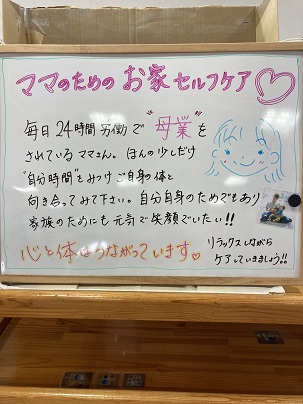 ママのための お家 セルフケア♡
毎日24時間労働で "母業"を
されているママさん。ほんの少しだけ
"自分時間"をみつけご自身の体と
向き合ってみて下さい。自分自身のためでもあり
家族のためにも元気で笑顔でいたい!!
心と体はつながっています♡
リラックスしながら
ケアしていきましょう!!